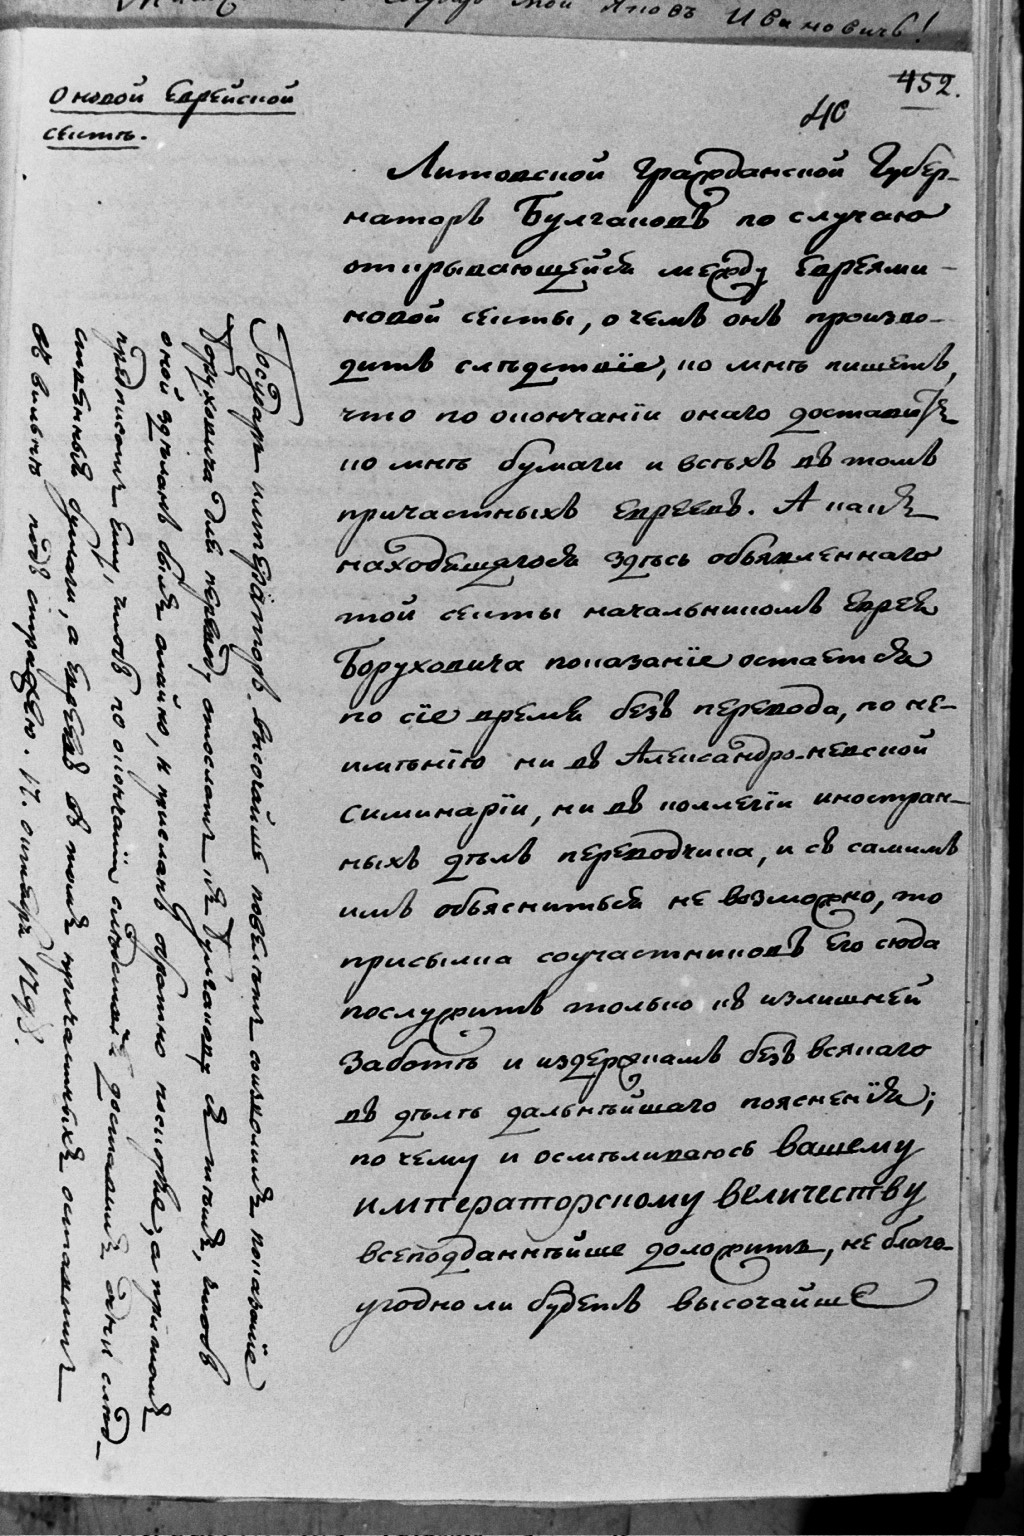 мой Яковъ Ивановичъ!
452.
40
О новой Еврейской
сектѣ.
Литовской Гражданской Губер-
наторъ Булгаковъ по случаю
открывающейся между евреями
новой секты, о чемъ онъ произво-
дитъ слѣдствіе, ко мнѣ пишетъ,
что по окончаніи онаго доставитъ
ко мнѣ бумаги и всѣхъ въ томъ
причастныхъ евреевъ. А какъ
находящагося здѣсь объявленнаго
той секты начальникомъ еврея
Боруховича показаніе остается
по сіе время безъ перевода, по не-
имѣнію ни въ Александро-невской
симинаріи, ни въ коллегіи иностран-
ныхъ дѣлъ переводчика, и съ самимъ
имъ объясниться не возможно, то
присылка соучастниковъ его сюда
послужитъ только къ излишней
заботѣ и издержкамъ безъ всякаго
въ дѣлѣ дальнѣйшаго поясненія;
по чему и осмѣливаюсь вашему
императорскому величеству
всеподданнѣйше доложить, не благо-
угодно ли будетъ высочайше
Государь императоръ высочайше повелѣть соизволилъ показаніе
Боруховича для переводу отослать къ Булгакову съ тѣмъ, чтобъ
оной здѣланъ былъ тайно, и присланъ обратно поскорѣе, а при томъ
предписать ему, чтобъ по окончаніи слѣдствія доставилъ одни слѣд-
ственныя бумаги, а евреевъ въ томъ причастныхъ оставилъ
въ вильнѣ подъ стражею. 17. октября 1798.